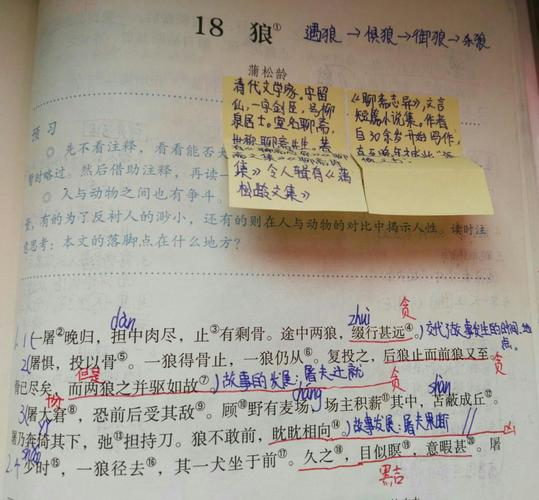 18 狼① 遇狼→惧狼→御狼→杀狼
蒲松龄
清代文学家,字留
仙,一字剑臣,号柳
泉居士。室名聊斋,
世称聊斋先生。著
集》今人辑有《蒲
松龄文集》
《聊斋志异》,文言
短篇小说集。作者
自30余岁开始写作,
预习
◎ 先不看注释,看看能否
暂时略过。然后借助注释,再读一
◎ 人与动物之间也有争斗。
有的为了反衬人的渺小,还有的则在人与动物的对比中揭示人性。读时注
意思考:本文的落脚点在什么地方?
dàn zhuì 贪
1.(一屠②晚归,担中肉尽,止③有剩骨。途中两狼,缀行甚远④。)交代了故事发生的时间、地
点。
2(屠惧,投以骨⑤。一狼得骨止,一狼仍从⑥。复投之,后狼止而前狼又至。
但是 贪
骨已尽矣,而两狼之并驱如故⑦。)故事的发展:屠夫迁就
贪
cháng shàn
3(屠大窘⑧,恐前后受其敌⑨。顾⑩野有麦场,场主积薪⑪其中,苫蔽成丘⑫。
屠乃奔倚其下,弛⑬担持刀。狼不敢前,眈眈相向⑭。)故事发展:屠夫果断
凶
shǎo
少时⑮,一狼径去⑯,其一犬坐于前⑰。久之⑱,目似瞑⑲,意暇甚⑳。屠
黠